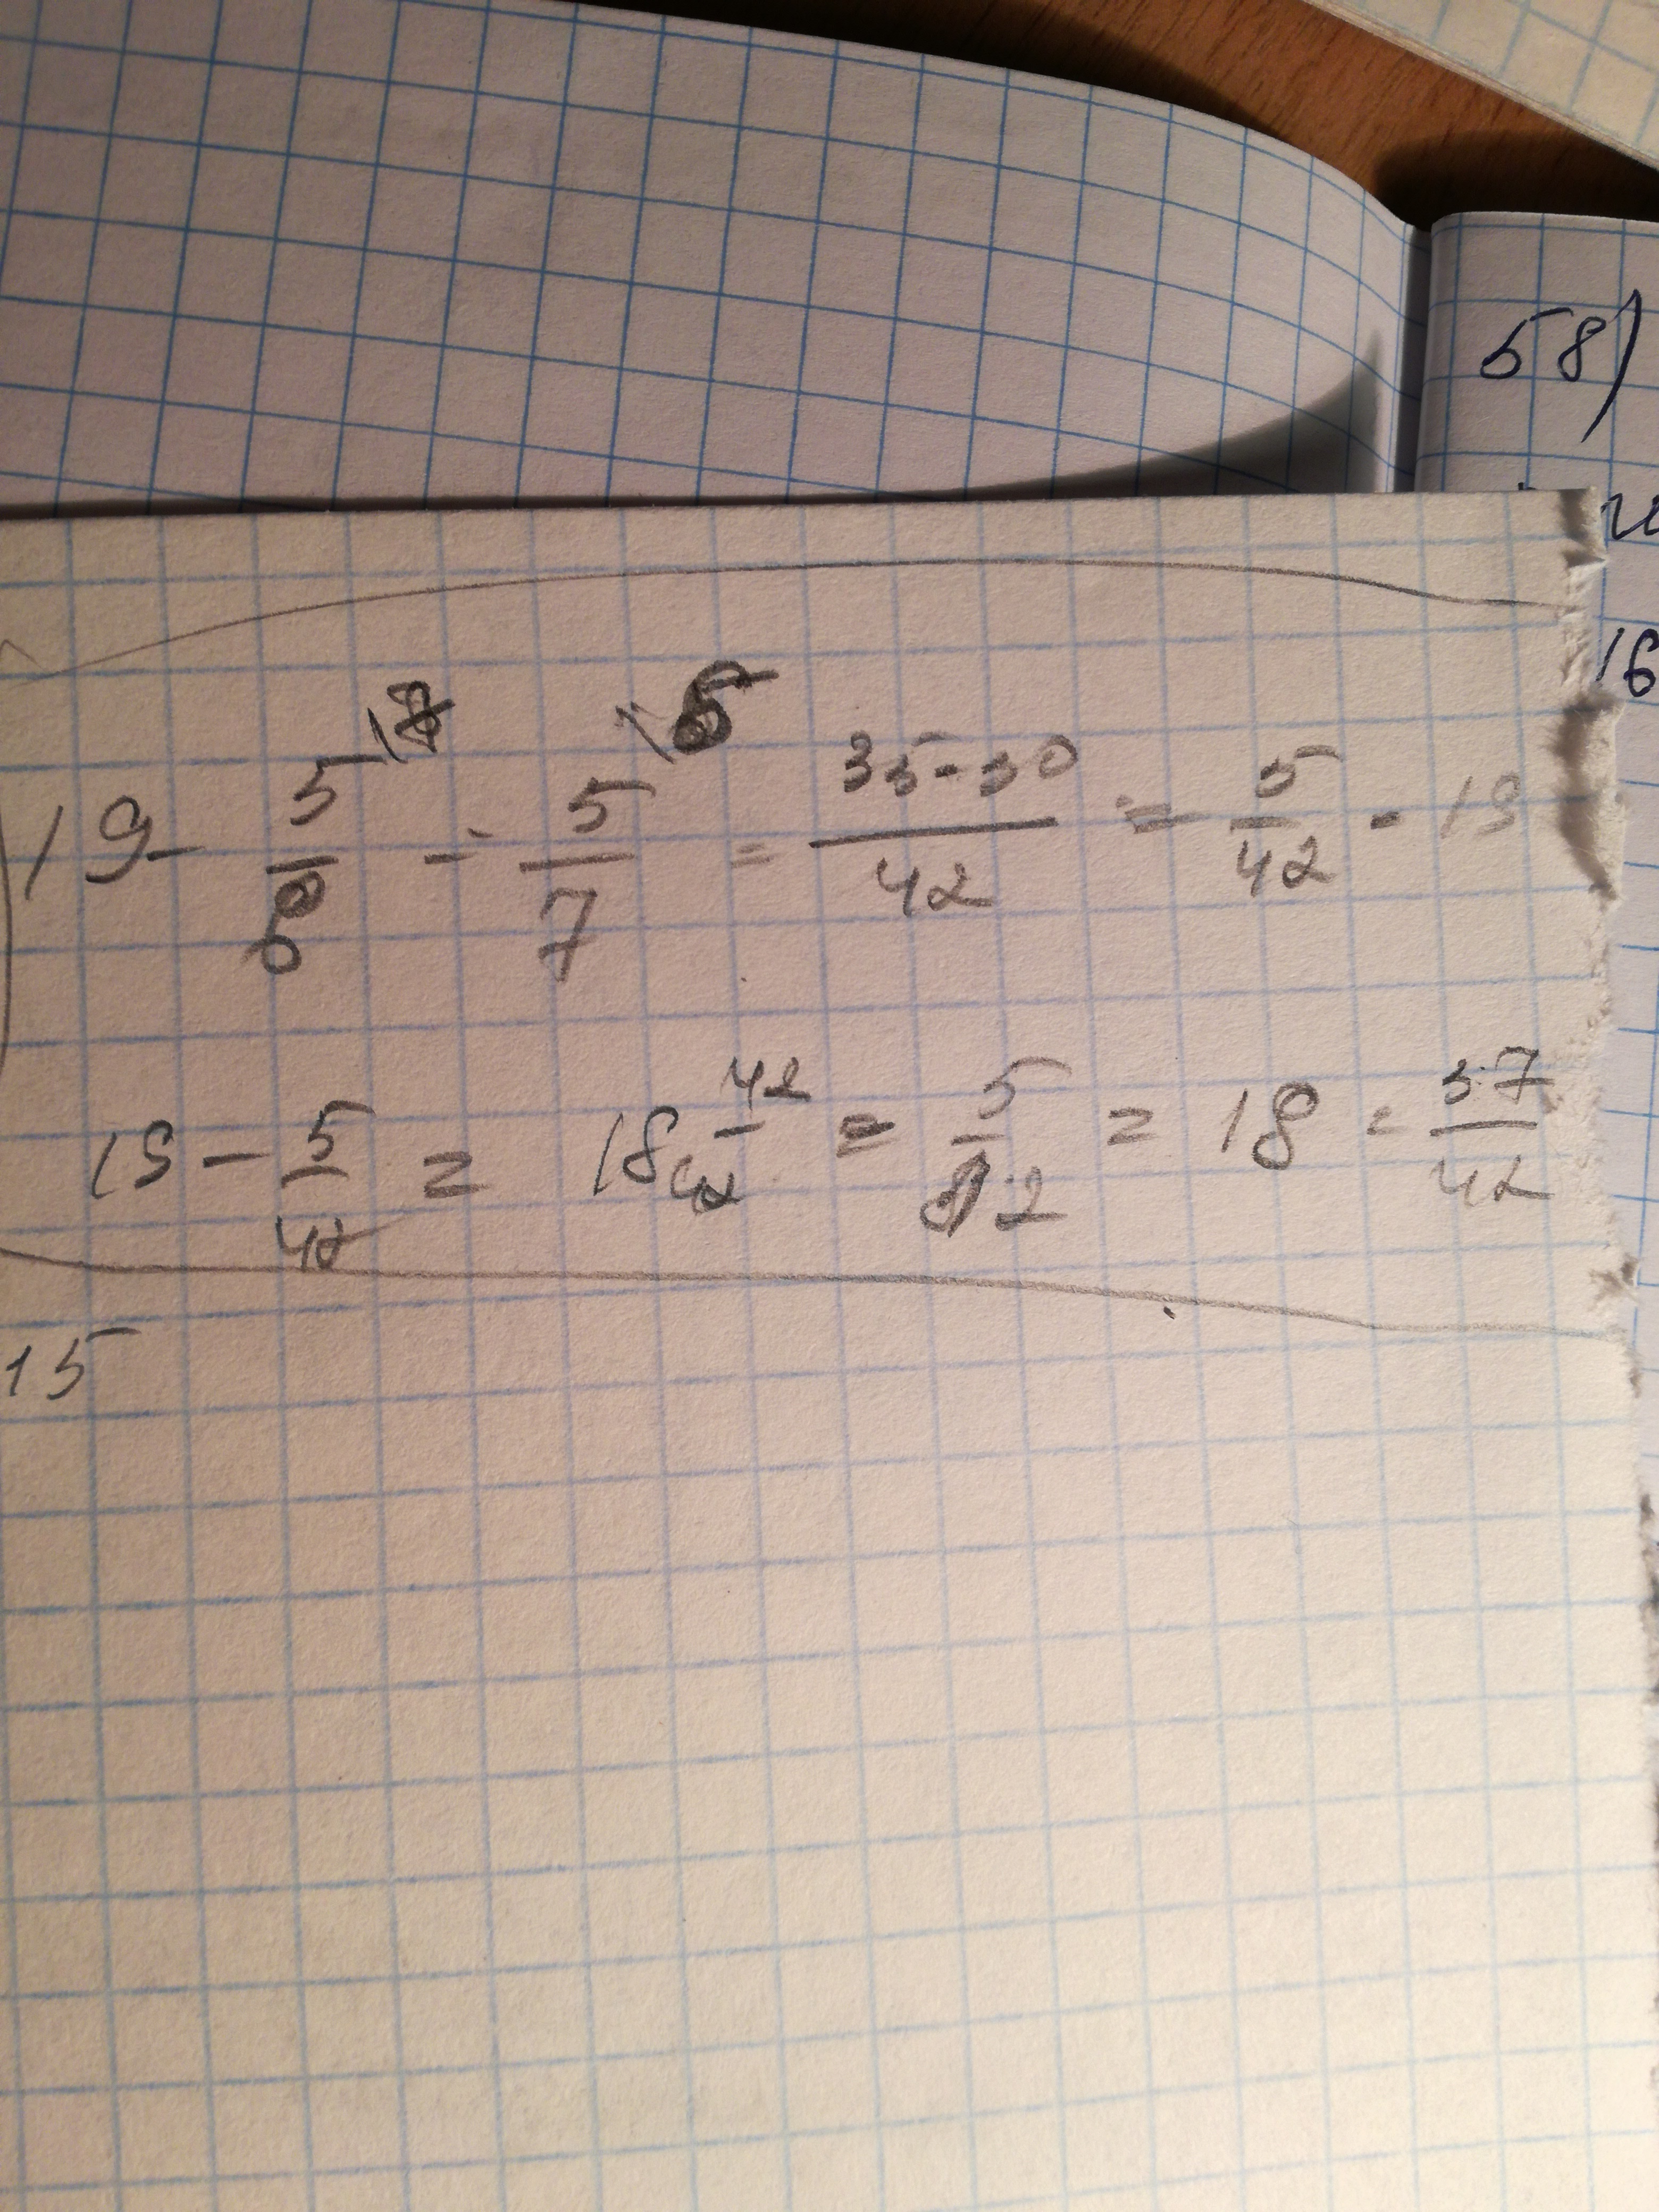 58)
16
19 - 5/6 \7 - 5/7 \6 = 35-30/42 = 5/42 - 19
19 - 5/42 = 18 42/42 - 5/42 = 18 - 37/42
15